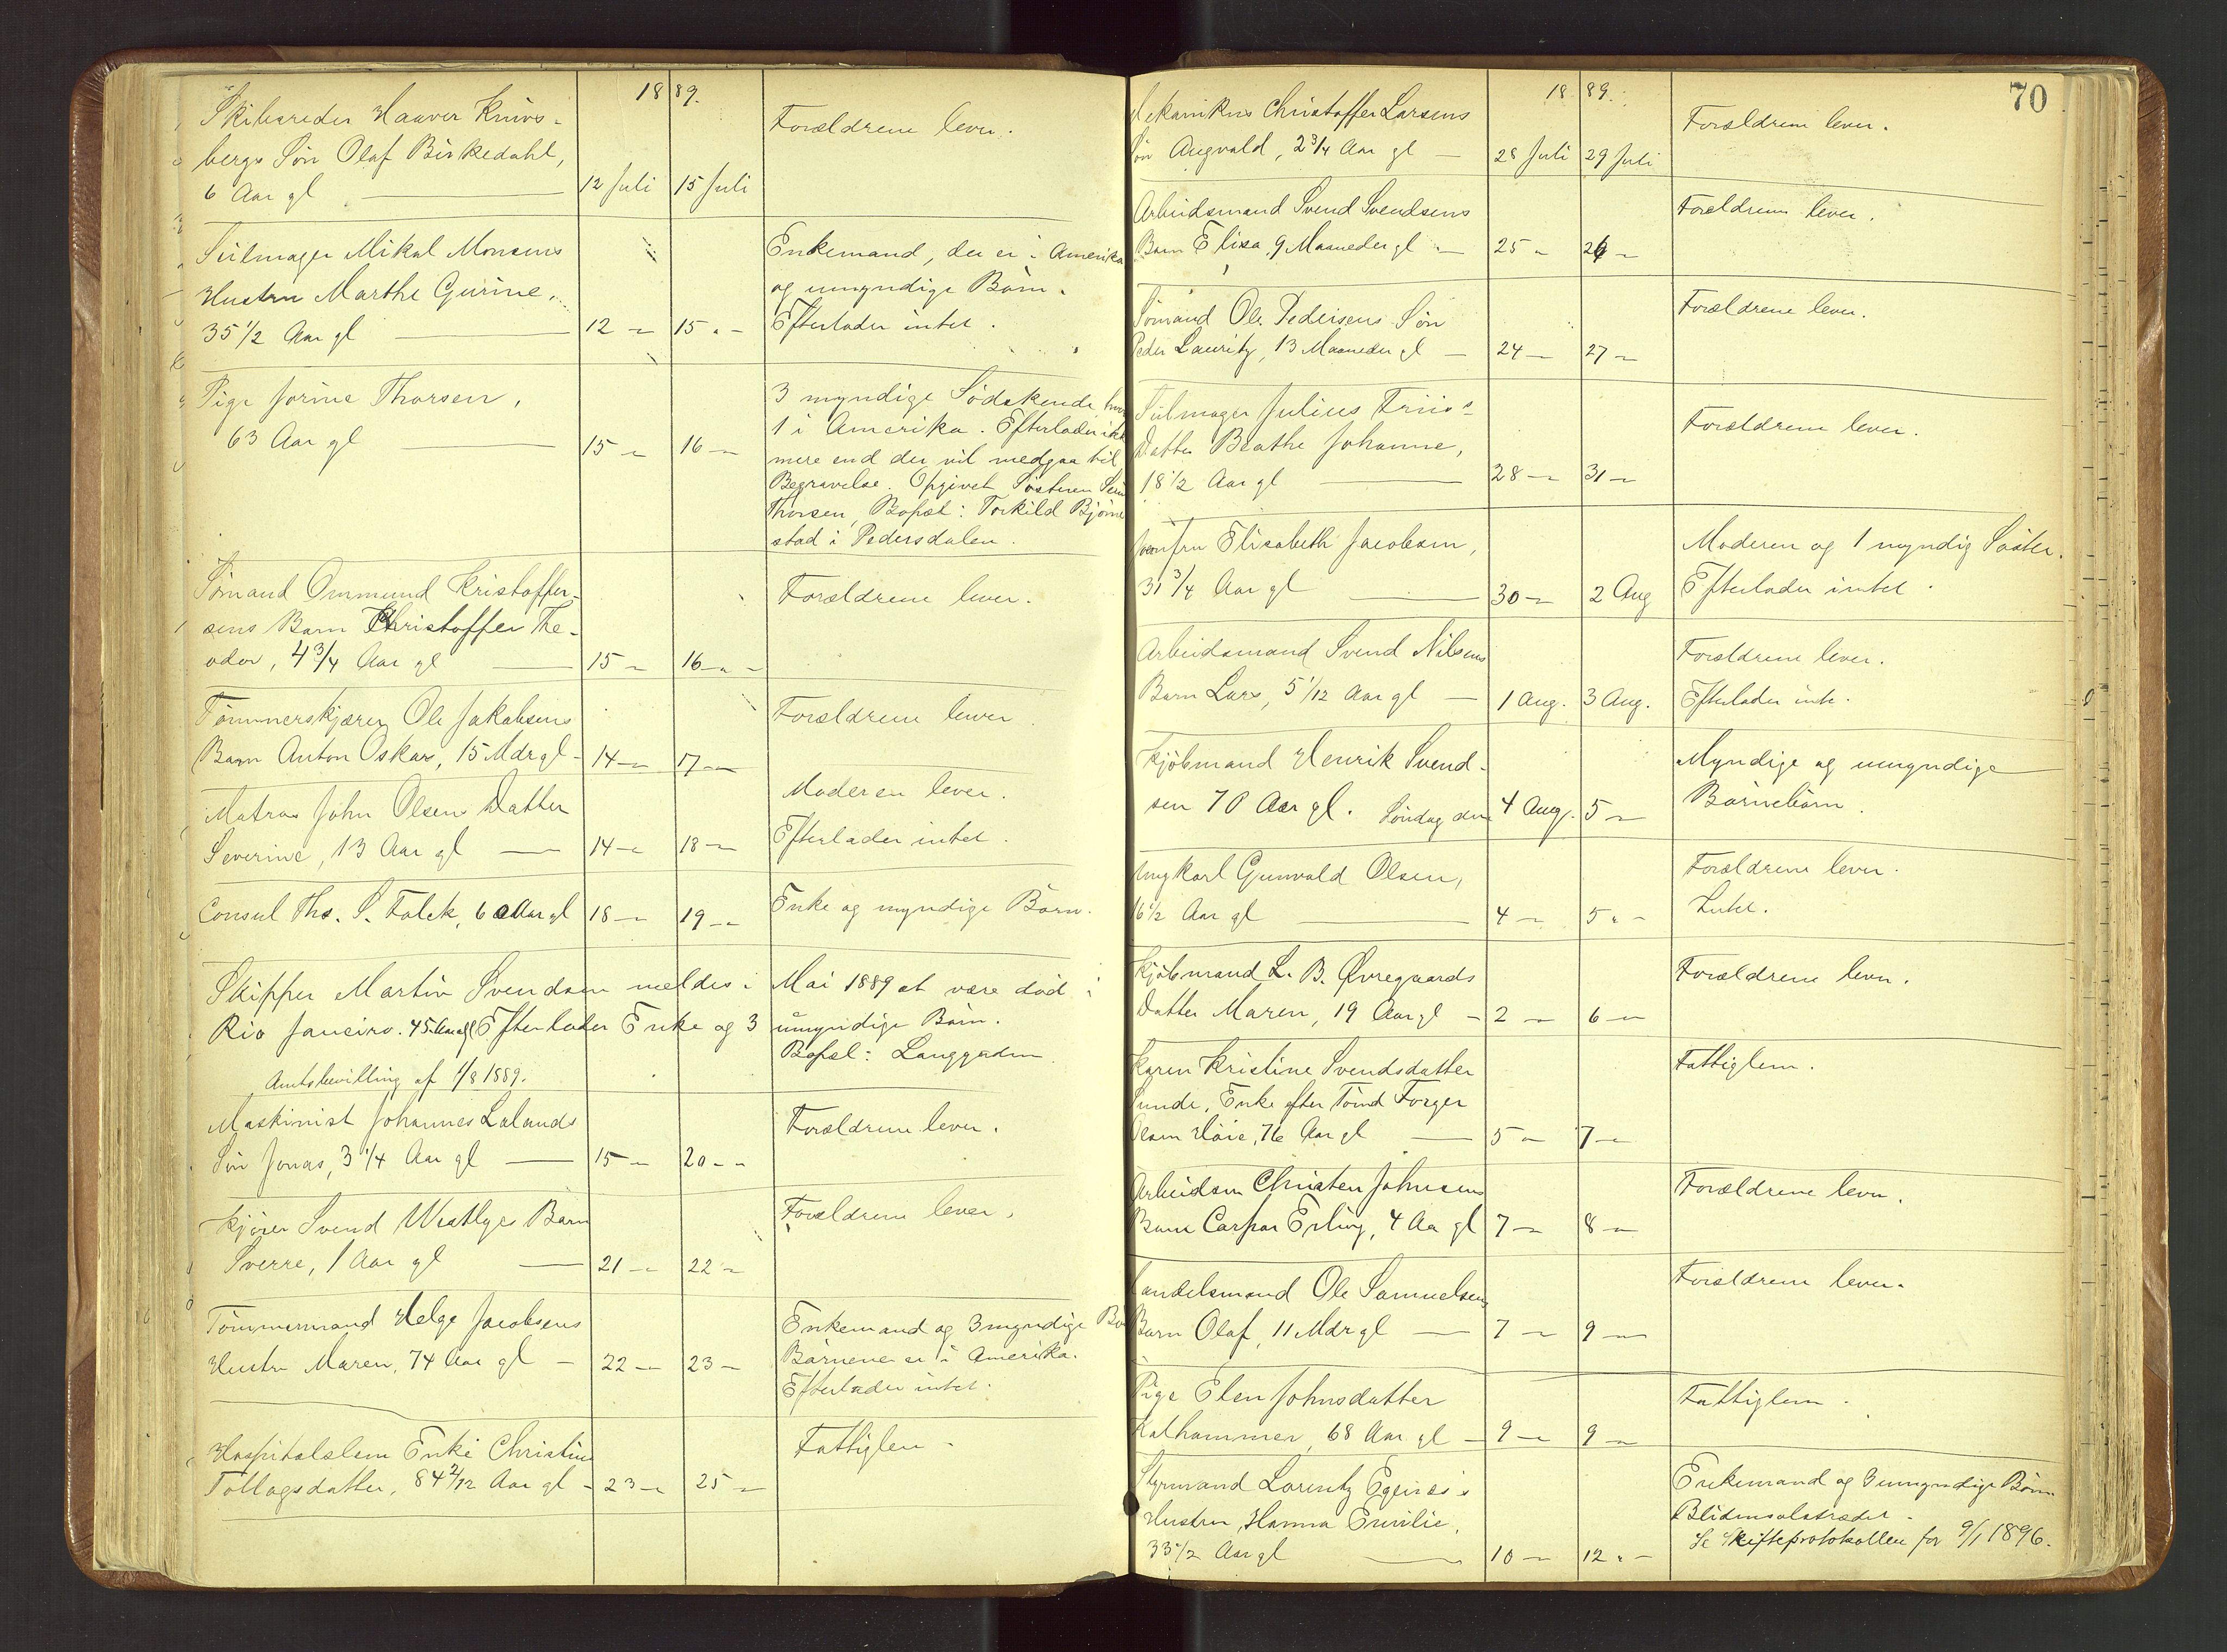 18 89.
Skibsreder Haaver Knivs-
bergs Søn Olaf Birkedahl,
6 Aar gl — 12 Juli 15 Juli
Forældrene lever.
Seilmager Mikal Monsens
Hustru Marthe Gurine,
35 1/2 Aar gl — 12 — 15 —
Enkemand, der er i Amerika
og umyndige Børn.
Efterlader intet.
Pige Jorine Thorsen,
63 Aar gl — 15 — 16 —
3 myndige Sødskende, hvor
1 i Amerika. Efterlader ikke
mere end der vil medgaa til
Begravelse. Opgivet Søsteren
Thorsen, Bopæl: Torkild Bjørne
stad i Pedersdalen.
Sømand Ommund Kristoffer-
sens Barn Christoffer The-
odor, 4 3/4 Aar gl — 15 — 16 —
Forældrene lever.
Tømmerskjærer Ole Jakobsens
Barn Anton Oskar, 15 Mdr gl — 14 — 17 —
Forældrene lever.
Matros John Olsens Datter
Severine, 13 Aar gl — 14 — 18 —
Moderen lever.
Efterlader intet.
Consul Ths. S. Falck, 60 Aar gl 18 — 19 —
Enke og myndige Børn.
Skipper Martin Svendsen meldes i Mai 1889 at være død i
Rio Janeiro. 45 Aar gl Efterlader Enke og 3 umyndige Børn.
Bopæl: Langgaden.
Amtsbevilling af 1/8 1889.
Maskinist Johannes Lalands
Søn Jonas, 3 1/4 Aar gl — 15 — 20 —
Forældrene lever.
Kjører Svend Westlyes Barn
Sverre, 1 Aar gl — 21 — 22 —
Forældrene lever.
Tømmermand Helge Jacobsens
Hustru Maren, 74 Aar gl — 22 — 23 —
Enkemand og 3 myndige Bø
Børnene er i Amerika.
Efterlader intet.
Hospitalslem Enke Christine
Tollagsdatter, 84 2/12 Aar gl — 23 — 25 —
Fattiglem
70
18 89.
Mekanikus Christoffer Larsens
Søn Augvald, 2 3/4 Aar gl — 28 Juli 29 Juli
Forældrene lever.
Arbeidsmand Svend Svendsens
Barn Elisa, 9 Maaneder gl — 25 — 26 —
Forældrene lever.
Sømand Ole Pedersens Søn
Peder Lauritz, 13 Maaneder gl — 24 — 27 —
Forældrene lever.
Seilmager Julius Friis's
Datter Beathe Johanne,
18 1/2 Aar gl — 28 — 31 —
Forældrene lever.
Jomfru Elisabeth Jacobsen,
31 3/4 Aar gl — 30 — 2 Aug
Moderen og 1 myndig Søster.
Efterlader intet.
Arbeidsmand Svend Nilsens
Barn Lars, 5 1/12 Aar gl — 1 Aug. 3 Aug.
Forældrene lever.
Efterlader intet.
Kjøbmand Henrik Svend-
sen 70 Aar gl. Søndag den 4 Aug. 5 —
Myndige og umyndige
Børnebørn.
Ungkarl Gunvald Olsen,
16 1/2 Aar gl — 4 — 5 —
Forældrene lever.
Intet.
Kjøbmand L. B. Øvregaards
Datter Maren, 19 Aar gl — 2 — 6 —
Forældrene lever.
Karen Kristine Svendsdatter
Sunde, Enke efter Tømd Torger
Olsen Høie, 76 Aar gl — 5 — 7 —
Fattiglem.
Arbeidsm Christen Johnsens
Barn Caspar Erling, 4 Aa gl 7 — 8 —
Forældrene lever.
Handelsmand Ole Samuelsens
Barn Olaf, 11 Mdr gl — 7 — 9 —
Forældrene lever.
Pige Elen Johnsdatter
Kalhammer, 68 Aar gl — 9 — 9 —
Fattiglem.
Styrmand Lorentz Egenæs's
Hustru, Hanna Emilie,
33 1/2 Aar gl — 10 — 12 —
Enkemand og 3 umyndige Børn
Blidensolstrædet.
Se Skifteprotokollen for 9/1 1896.